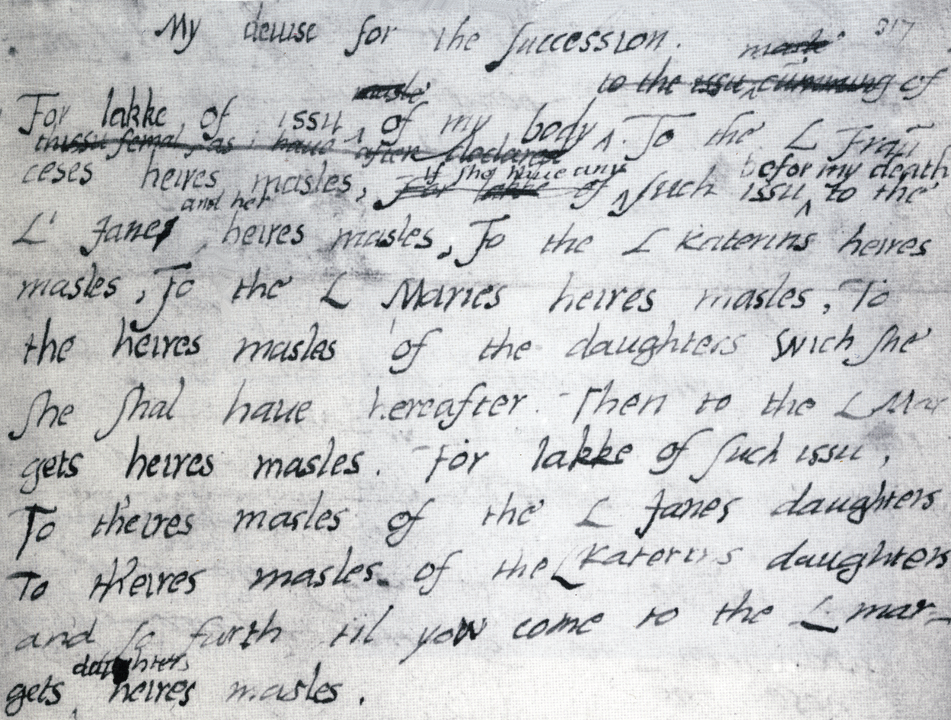 My deuise for the succession. 317
masle
masle to the issu cumming of
For lakke of issu of my body. To the L Frau
thissu femal, as i haue after declared
ceses heires masles, For lakke of such issu to the
if she haue any befor my death
L' Janes heires masles, To the L Katerins heires
and her
masles, To the L Maries heires masles, To
the heires masles of the daughters wich she
she shal haue hereafter. Then to the L Mar
gets heires masles. For lakke of such issu,
To theires masles of the L Janes daughters
To theires masles of the L Katerins daughters
and so furth til yow come to the L mar-
daughters
gets heires masles.